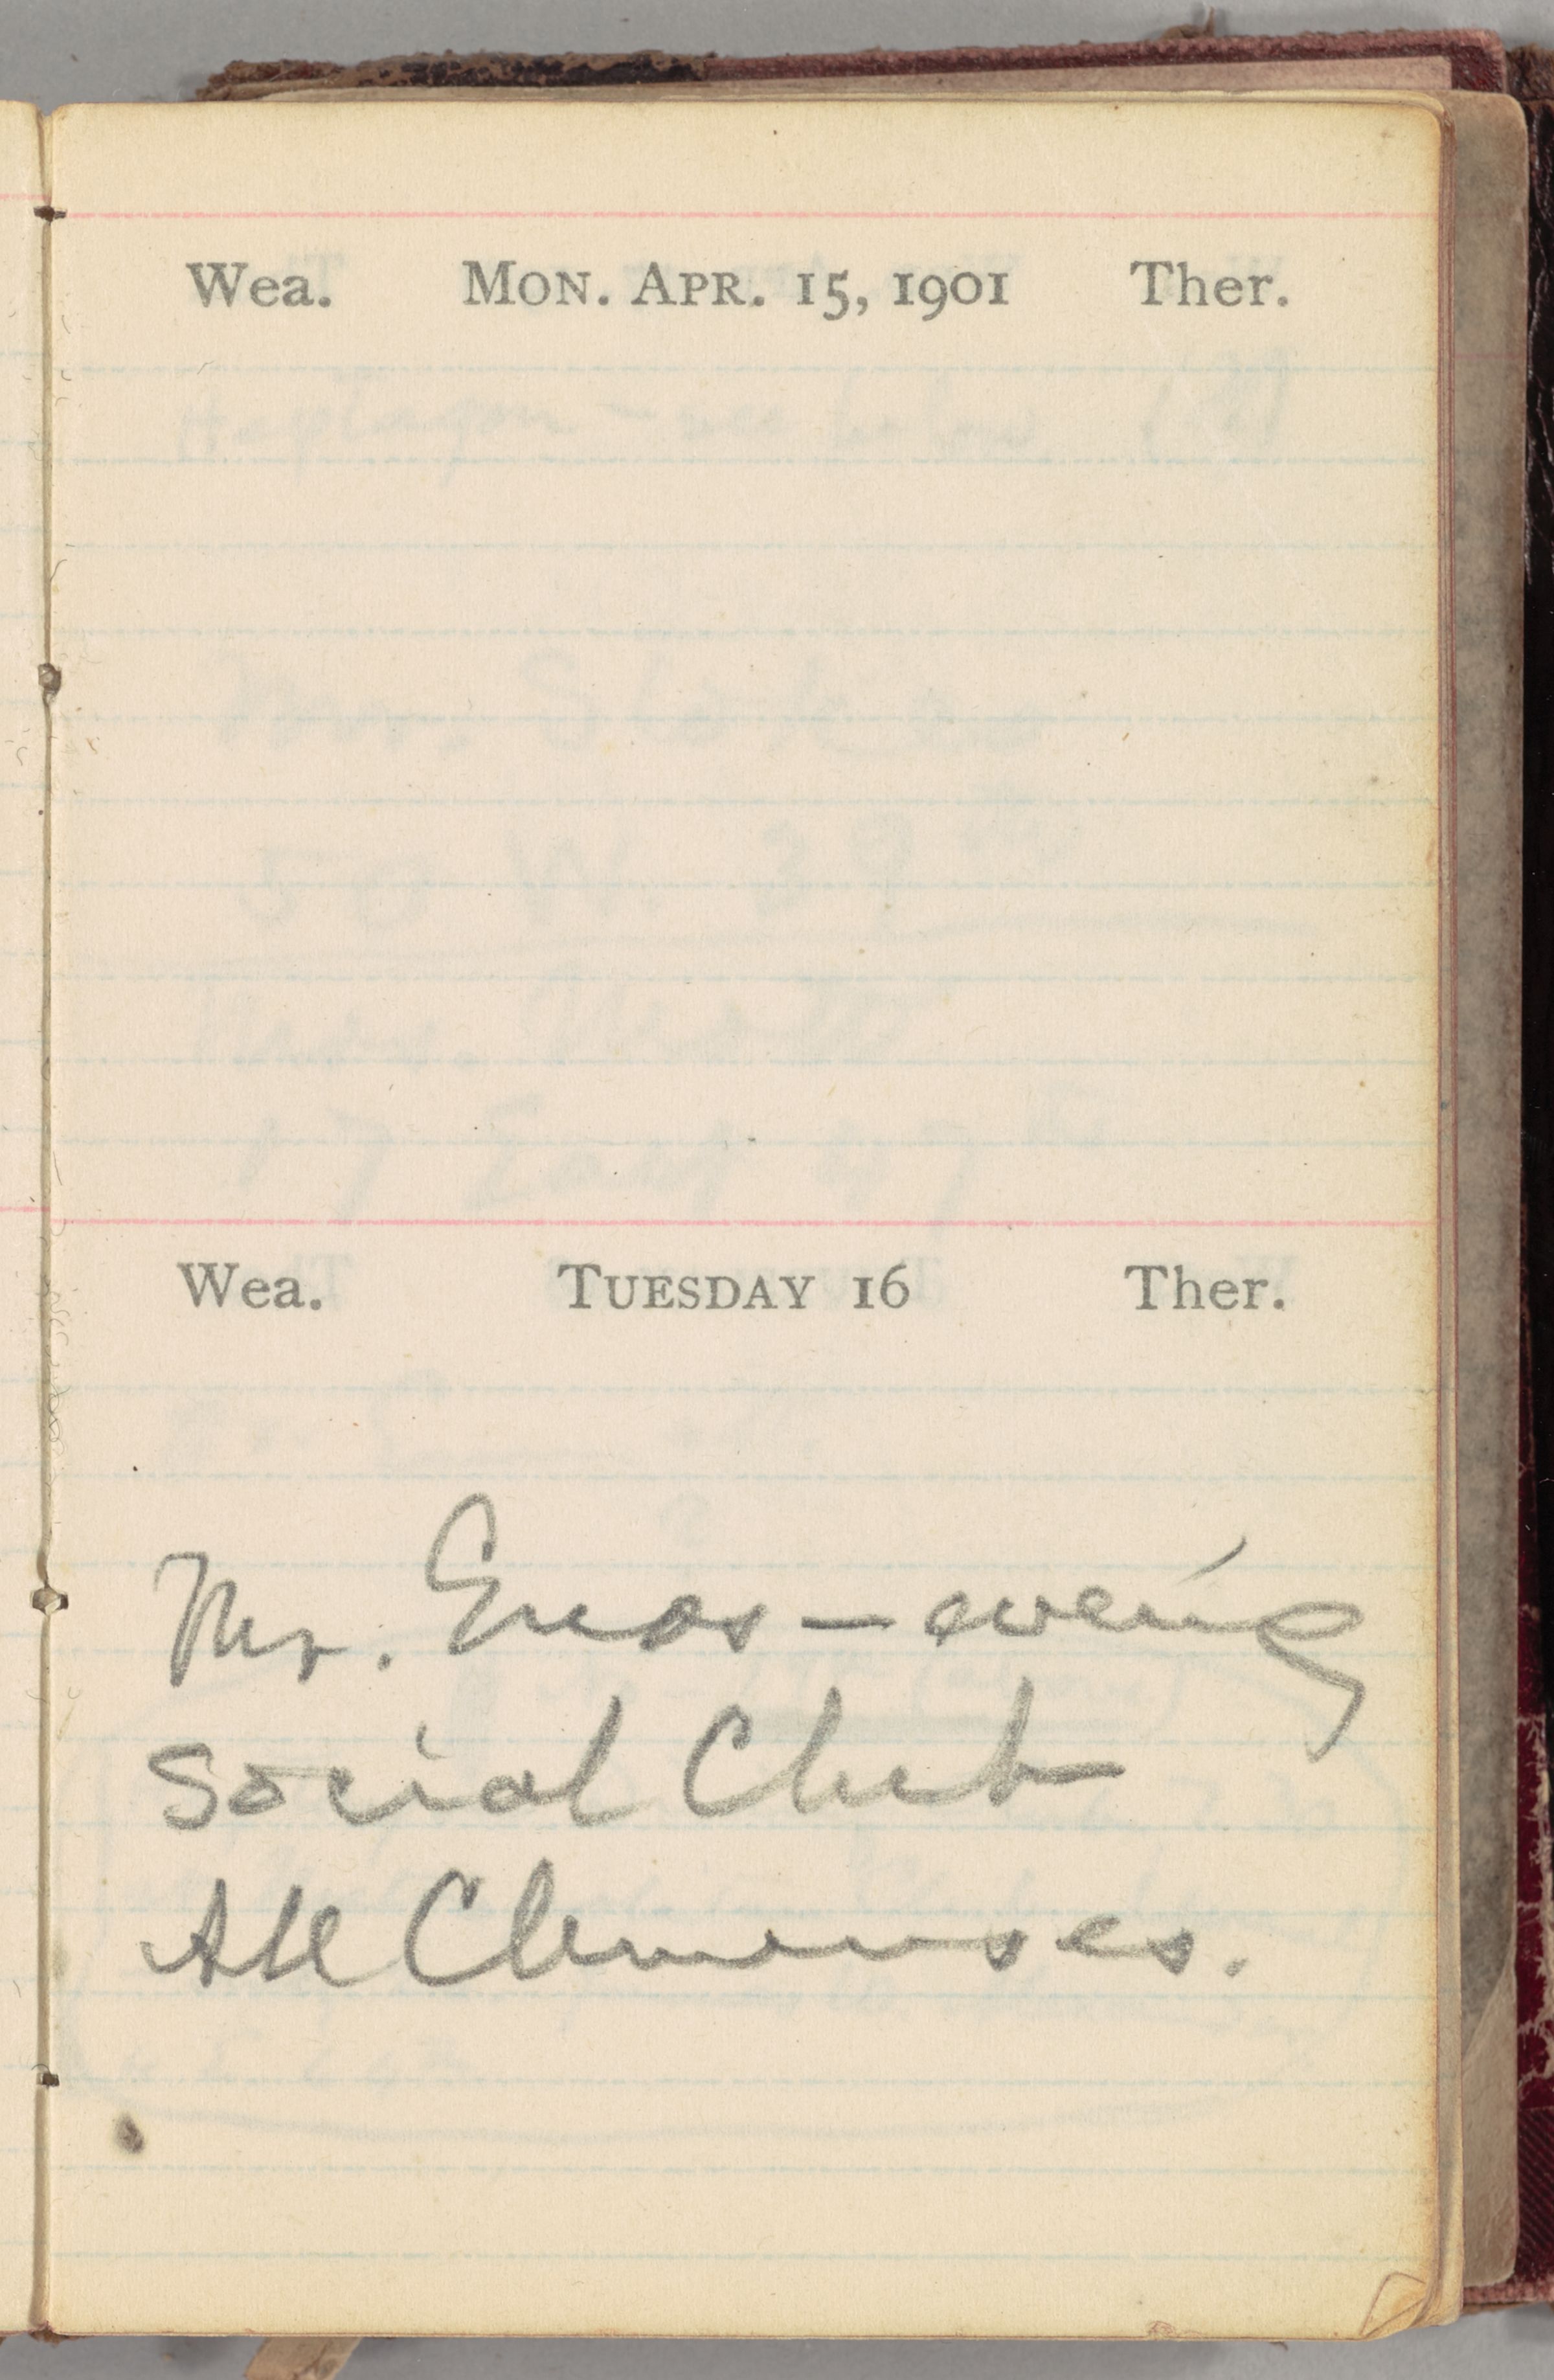 Wea. Mon. Apr. 15, 1901 Ther.
Wea. Tuesday 16 Ther.
Mr. Enos – evening
Social Club
All Clemenses.